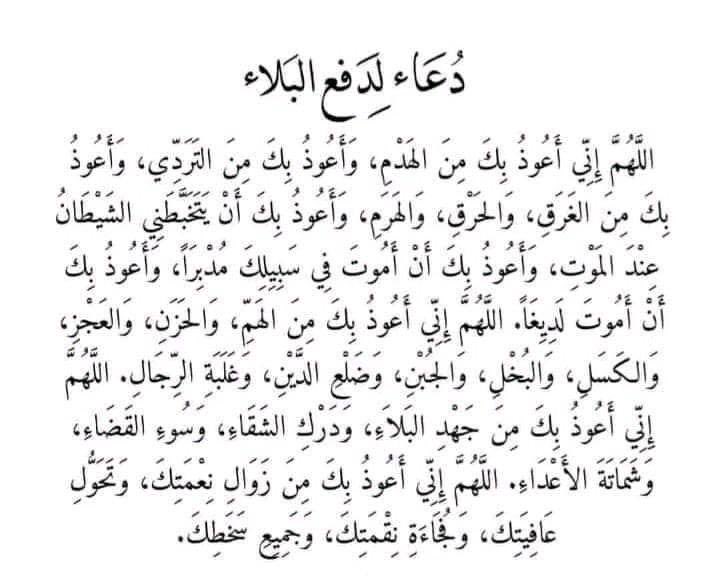 دُعَاء لِدَفع البَلاء
اللَّهُمَّ إِنِّي أَعُوذُ بِكَ مِنَ الهَدْمِ، وَأَعُوذُ بِكَ مِنَ التَرَدِّي، وَأَعُوذُ
بِكَ مِنَ الغَرَقِ، وَالحَرْقِ، وَالهَرَمِ، وَأَعُوذُ بِكَ أَنْ يَتَخَبَّطَنِي الشَيْطَانُ
عِنْدَ المَوْتِ، وَأَعُوذُ بِكَ أَنْ أَمُوتَ فِي سَبِيلِكَ مُدْبَرَاً، وَأَعُوذُ بِكَ
أَنْ أَمُوتَ لَدِيغَاً. اللَّهُمَّ إِنِّي أَعُوذُ بِكَ مِنَ الهَمِّ، وَالحَزَنِ، وَالعَجْزِ،
وَالكَسَلِ، وَالبُخْلِ، وَالجُبْنِ، وَضَلْعِ الدَّيْنِ، وَغَلَبَةِ الرِّجَالِ. اللَّهُمَّ
إِنِّي أَعُوذُ بِكَ مِنَ جَهْدِ البَلَاءِ، وَدَرْكِ الشَقَاءِ، وَسُوءِ القَضَاءِ،
وَشَمَاتَةَ الأَعْدَاءِ. اللَّهُمَّ إِنِّي أَعُوذُ بِكَ مِنَ زَوَالِ نِعْمَتِكَ، وَتَحَوُّلِ
عَافِيَتِكَ، وَفُجَاءَةِ نِقْمَتِكَ، وَجَمِيعِ سَخَطِكَ.